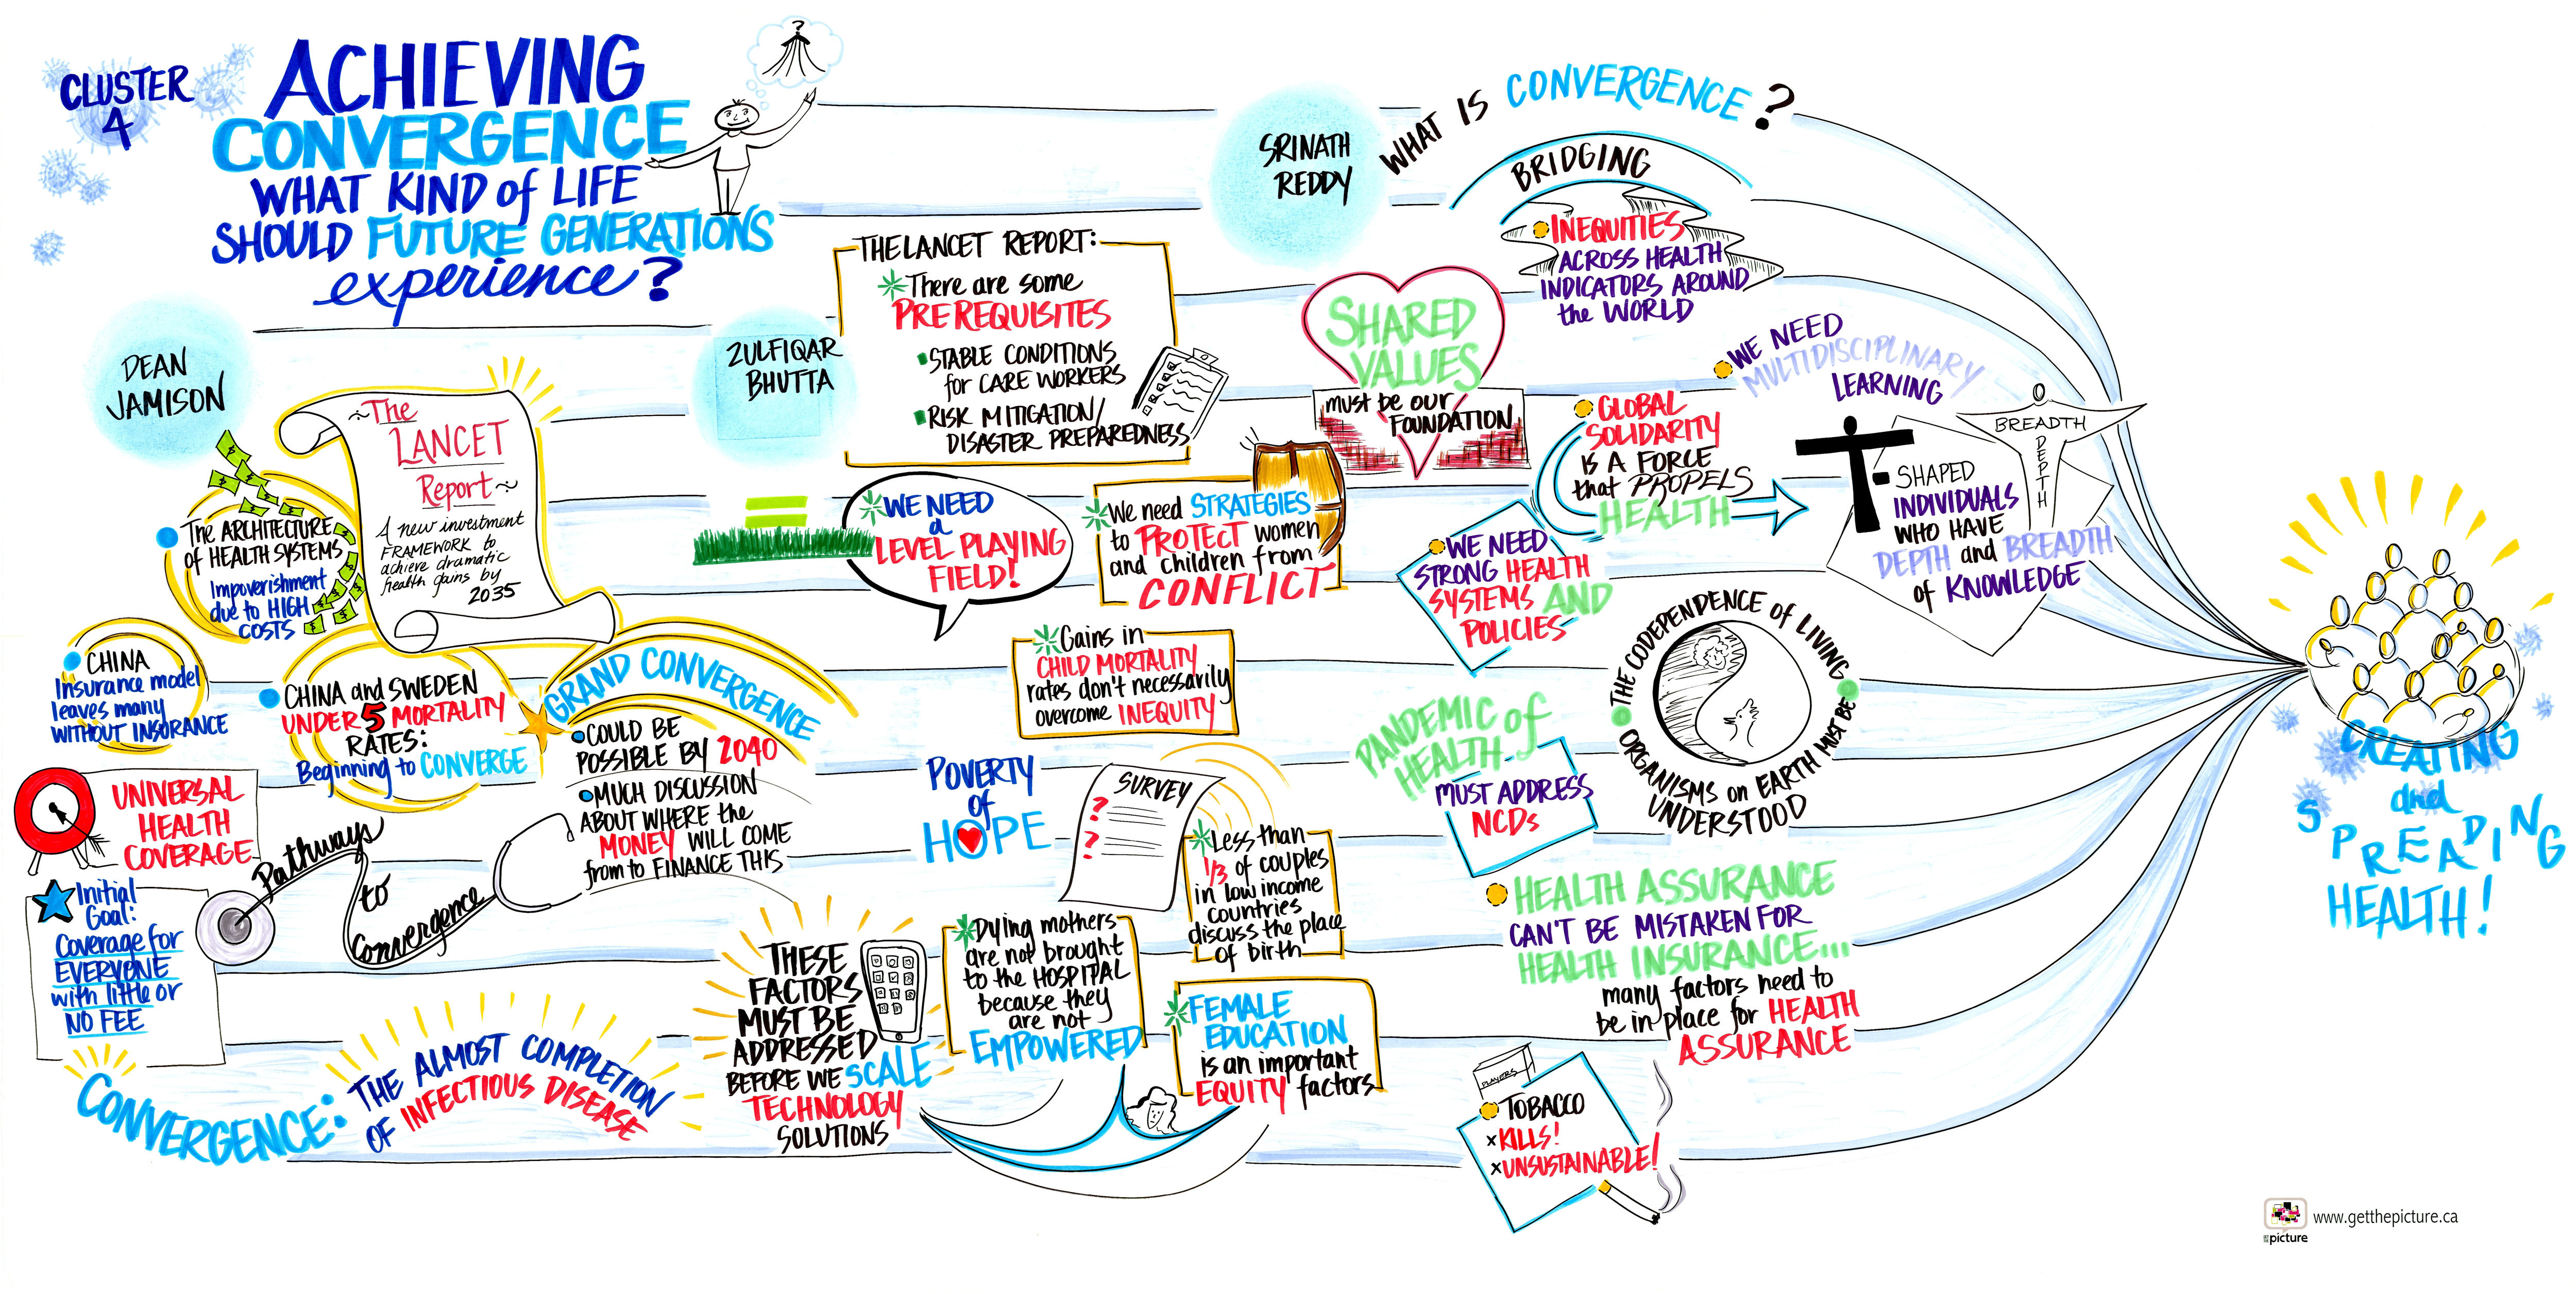 CLUSTER
4
ACHIEVING
CONVERGENCE
WHAT KIND of LIFE
SHOULD FUTURE GENERATIONS
experience?
?
DEAN
JAMISON
The
LANCET
Report
A new investment
FRAMEWORK to
achieve dramatic
health gains by
2035
The ARCHITECTURE
of HEALTH SYSTEMS
Impoverishment
due to HIGH
COSTS
CHINA
Insurance model
leaves many
WITHOUT INSURANCE
CHINA and SWEDEN
UNDER 5 MORTALITY
RATES:
Beginning to CONVERGE
GRAND CONVERGENCE
COULD BE
POSSIBLE BY 2040
MUCH DISCUSSION
ABOUT WHERE the
MONEY WILL COME
from to FINANCE THIS
UNIVERSAL
HEALTH
COVERAGE
Initial
Goal:
Coverage for
EVERYONE
with little or
NO FEE
Pathways
to
Convergence
CONVERGENCE:
THE ALMOST COMPLETION
OF INFECTIOUS DISEASE
ZULFIQAR
BHUTTA
THE LANCET REPORT:
There are some
PREREQUISITES
STABLE CONDITIONS
for CARE WORKERS
RISK MITIGATION/
DISASTER PREPAREDNESS
WE NEED
a
LEVEL PLAYING
FIELD!
We need STRATEGIES
to PROTECT women
and children from
CONFLICT
Gains in
CHILD MORTALITY
rates don't necessarily
overcome INEQUITY
POVERTY
of
HOPE
SURVEY
?
?
Less than
1/3 of couples
in low income
countries
discuss the place
of birth
Dying mothers
are not brought
to the HOSPITAL
because they
are not
EMPOWERED
FEMALE
EDUCATION
is an important
EQUITY factors
THESE
FACTORS
MUST BE
ADDRESSED
BEFORE WE SCALE
TECHNOLOGY
SOLUTIONS
SRINATH
REDDY
WHAT IS CONVERGENCE?
BRIDGING
INEQUITIES
ACROSS HEALTH
INDICATORS AROUND
the WORLD
SHARED
VALUES
must be our
FOUNDATION
GLOBAL
SOLIDARITY
IS A FORCE
that PROPELS
HEALTH
WE NEED
MULTIDISCIPLINARY
LEARNING
T-SHAPED
INDIVIDUALS
WHO HAVE
DEPTH and BREADTH
of KNOWLEDGE
BREADTH
DEPTH
WE NEED
STRONG HEALTH
SYSTEMS AND
POLICIES
THE CODEPENDENCE of LIVING
ORGANISMS on EARTH MUST BE
UNDERSTOOD
PANDEMIC of
HEALTH
MUST ADDRESS
NCDs
HEALTH ASSURANCE
CAN'T BE MISTAKEN FOR
HEALTH INSURANCE...
many factors need to
be in place for HEALTH
ASSURANCE
PLAYERS
TOBACCO
x KILLS!
x UNSUSTAINABLE!
CREATING
and
SPREADING
HEALTH!
picture
www.getthepicture.ca